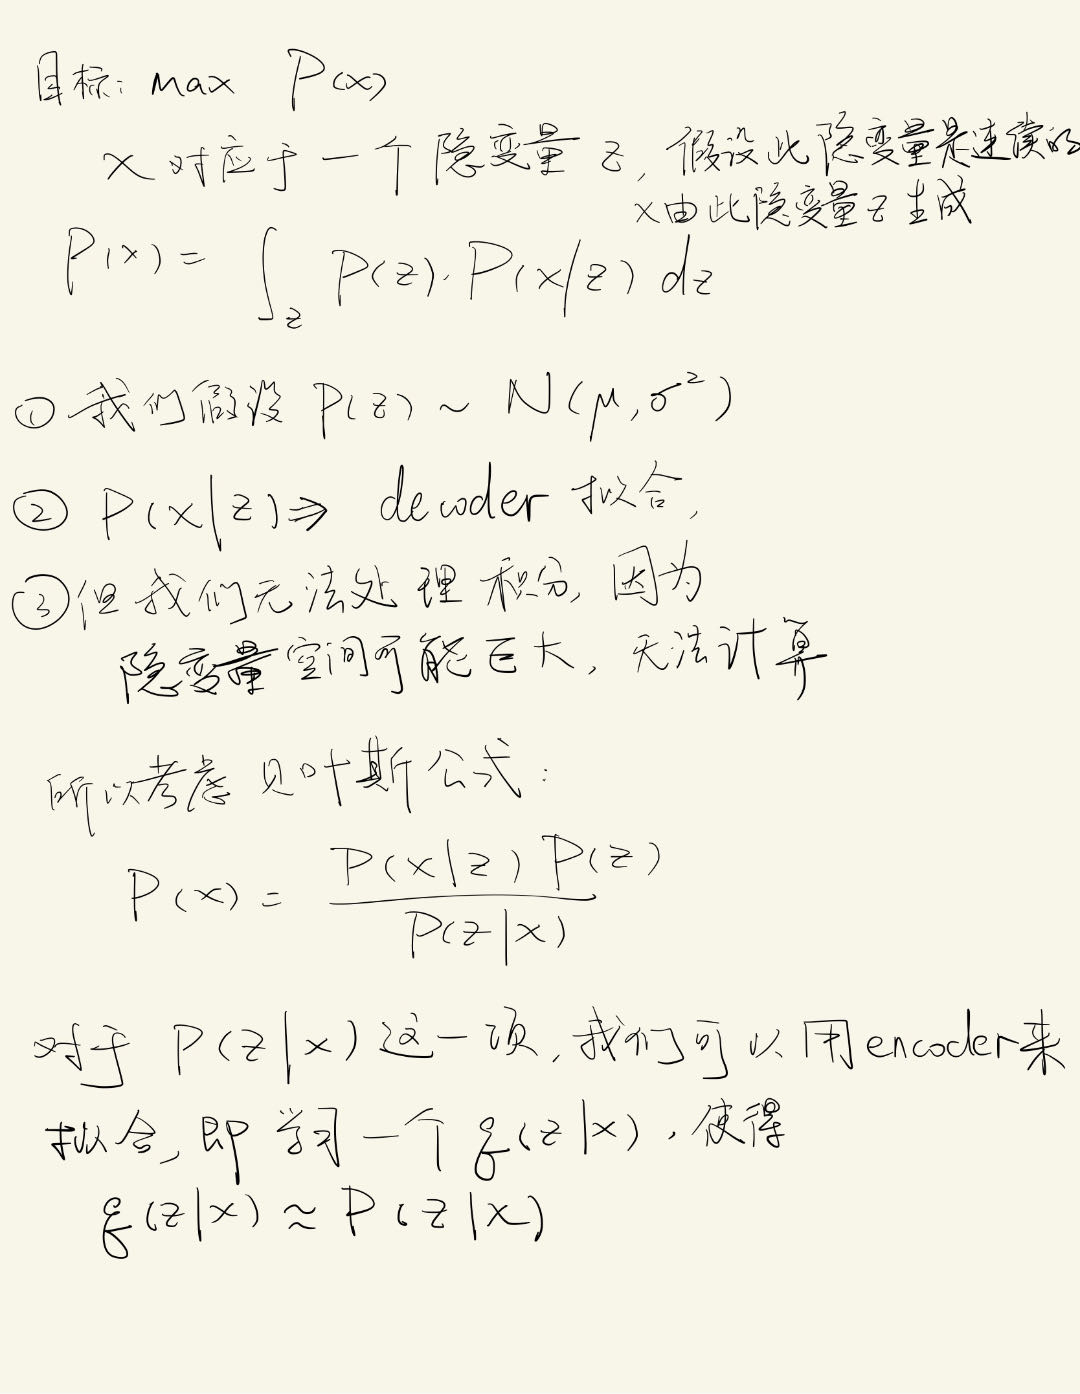 目标: max P(x)
x 对应于一个隐变量 z, 假设此隐变量是连续的
x由此隐变量z生成
P(x) = ∫_z P(z)·P(x|z) dz
① 我们假设 P(z) ~ N(μ, σ²)
② P(x|z) ⇒ decoder 拟合,
③ 但我们无法处理积分, 因为
隐变量空间可能巨大, 无法计算
所以考虑贝叶斯公式:
P(x) = P(x|z) P(z) / P(z|x)
对于 P(z|x) 这一项, 我们可以用encoder来
拟合, 即学习一个 q(z|x), 使得
q(z|x) ≈ P(z|x)